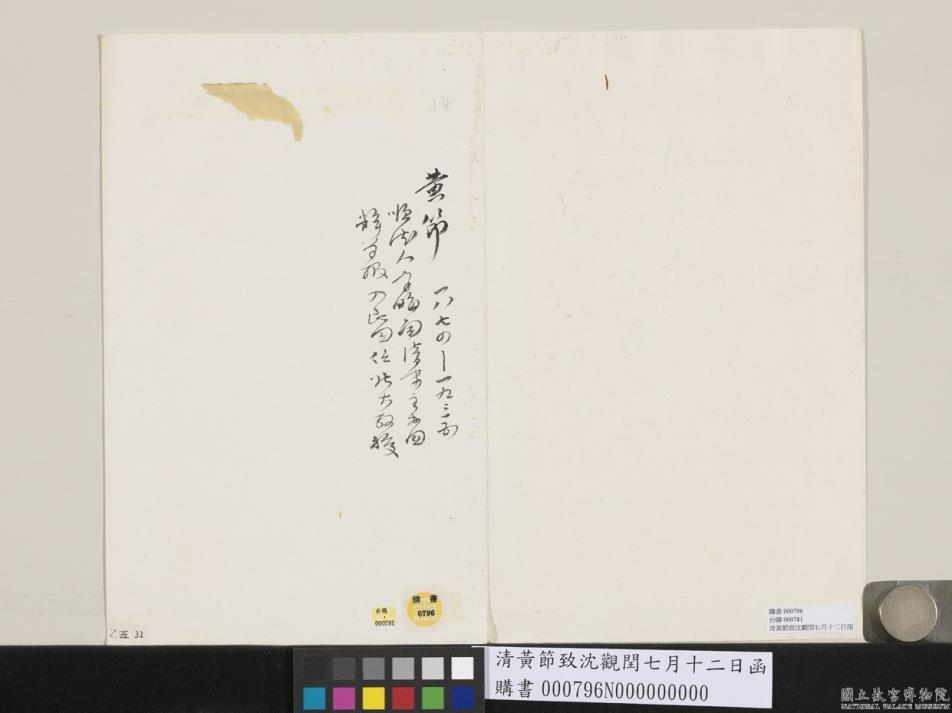 黄節 一八七四—一九三五
順德人字晦聞清季主国
粹學報入民國任北大教授
乙五 32
台購
000781
購書
0796
購書 000796
台購 000781
清黃節致沈觀閏七月十二日函
清黃節致沈觀閏七月十二日函
購書 000796N000000000
國立故宮博物院
NATIONAL PALACE MUSEUM